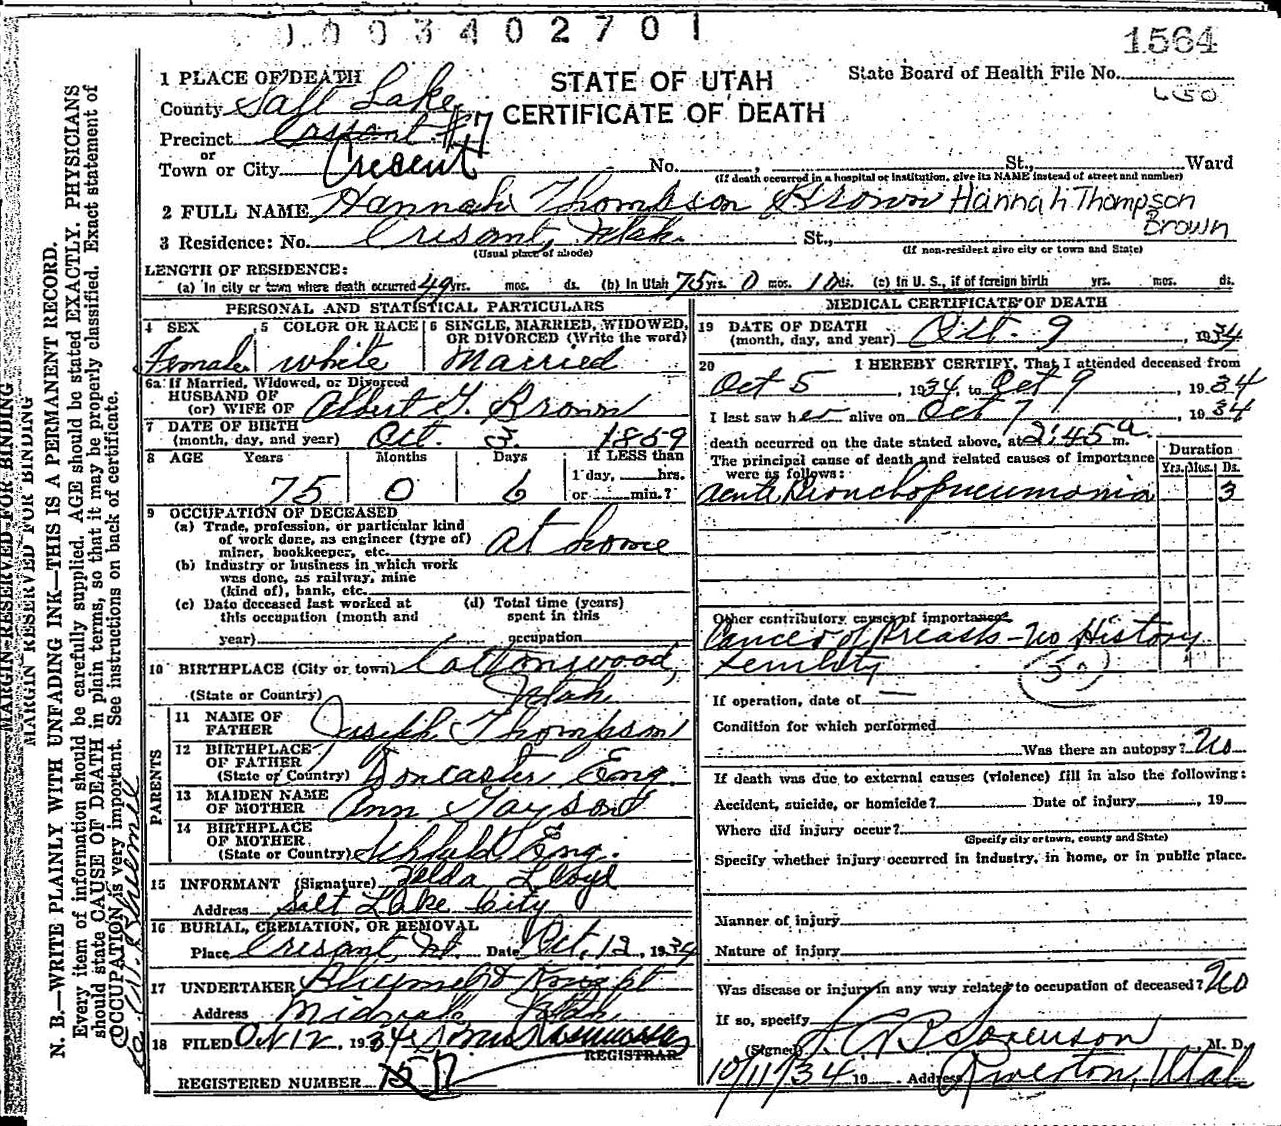 0003402701
1564
1 PLACE OF DEATH
STATE OF UTAH
CERTIFICATE OF DEATH
State Board of Health File No.
County Salt Lake
Precinct Cresant #17
or
Town or City Crecent No. , St., Ward
(If death occurred in a hospital or institution, give its NAME instead of street and number)
2 FULL NAME Hannah Thompson Brown Hannah Thompson
Brown
3 Residence: No. Cresant, Utah. St.,
(Usual place of abode) (If non-resident give city or town and State)
LENGTH OF RESIDENCE:
(a) In city or town where death occurred 49 yrs. mos. ds. (b) In Utah 75 yrs. 0 mos. ds. (c) In U. S., if of foreign birth yrs. mos. ds.
PERSONAL AND STATISTICAL PARTICULARS
4 SEX 5 COLOR OR RACE 6 SINGLE, MARRIED, WIDOWED,
OR DIVORCED (Write the word)
Female white Married
6a If Married, Widowed, or Divorced
HUSBAND OF
(or) WIFE OF Albert G. Brown
7 DATE OF BIRTH
(month, day, and year) Oct. 3. 1859
8 AGE Years Months Days If LESS than
1 day, hrs.
or min.?
75 0 6
9 OCCUPATION OF DECEASED
(a) Trade, profession, or particular kind
of work done, as engineer (type of)
miner, bookkeeper, etc. at home
(b) Industry or business in which work
was done, as railway, mine
(kind of), bank, etc.
(c) Date deceased last worked at (d) Total time (years)
this occupation (month and spent in this
year) occupation
10 BIRTHPLACE (City or town) Cottonwood,
(State or Country) Utah
PARENTS
11 NAME OF
FATHER Joseph Thompson
12 BIRTHPLACE
OF FATHER
(State or Country) Doncaster Eng.
13 MAIDEN NAME
OF MOTHER Ann
14 BIRTHPLACE
OF MOTHER
(State or Country) Eng.
15 INFORMANT (Signature) Zelda Lloyd
Address Salt Lake City
16 BURIAL, CREMATION, OR REMOVAL
Place Cresant, Ut. Date Oct. 12, 1934
17 UNDERTAKER
Address Midvale Utah
18 FILED Oct 12, 1934
REGISTRAR
REGISTERED NUMBER
MEDICAL CERTIFICATE OF DEATH
19 DATE OF DEATH
(month, day, and year) Oct. 9, 1934
20 I HEREBY CERTIFY, That I attended deceased from
Oct 5, 1934, to Oct 9, 1934
I last saw her alive on Oct 7, 1934
death occurred on the date stated above, at 2:45 a. m.
The principal cause of death and related causes of importance
were as follows:
Duration
Yrs. Mos. Ds.
Acute Bronchopneumonia 3
Other contributory causes of importance
Cancer of Breasts - no History
Senility
If operation, date of
Condition for which performed
Was there an autopsy? No
If death was due to external causes (violence) fill in also the following:
Accident, suicide, or homicide? Date of injury , 19
Where did injury occur?
(Specify city or town, county and State)
Specify whether injury occurred in industry, in home, or in public place.
Manner of injury
Nature of injury
Was disease or injury in any way related to occupation of deceased? No
If so, specify
(Signed) Sorenson, M. D.
10/11/34 19 Address Riverton, Utah
MARGIN RESERVED FOR BINDING
MARGIN RESERVED FOR BINDING
N. B.—WRITE PLAINLY WITH UNFADING INK—THIS IS A PERMANENT RECORD.
Every item of information should be carefully supplied. AGE should be stated EXACTLY. PHYSICIANS
should state CAUSE OF DEATH in plain terms, so that it may be properly classified. Exact statement of
OCCUPATION is very important. See instructions on back of certificate.